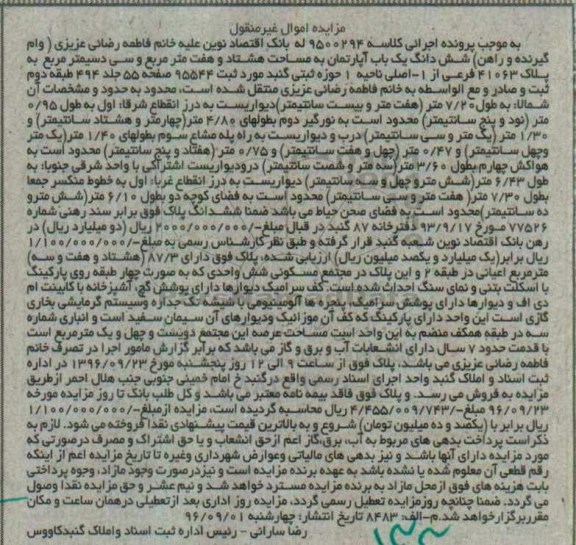 مزایده اموال غیرمنقول
به موجب پرونده اجرائی کلاسه ۹۵۰۰۲۹۴ له بانک اقتصاد نوین علیه خانم فاطمه رضائی عزیزی ( وام
گیرنده و راهن) شش دانگ یک باب آپارتمان به مساحت هشتاد و هفت متر مربع و سی دسیمتر مربع به
پلاک ۴۱۰۶۳ فرعی از ۱-اصلی ناحیه ۱ حوزه ثبتی گنبد مورد ثبت ۹۵۵۴۴ صفحه ۵۵ جلد ۴۹۴ طبقه دوم
ثبت و صادر و مع الواسطه به خانم فاطمه رضائی عزیزی منتقل شده است، محدود به حدود و مشخصات آن
شمالا: به طول ۷/۲۰ متر (هفت متر و بیست سانتیمتر) دیواریست به درز انقطاع شرقا: اول به طول ۰/۹۵
متر (نود و پنج سانتیمتر) محدود است به نورگیر دوم بطولهای ۴/۸۰ متر(چهارمتر و هشتاد سانتیمتر) و
۱/۳۰ متر (یک متر و سی سانتیمتر) درب و دیواریست به راه پله مشاع سوم بطولهای ۱/۴۰ متر(یک متر
وچهل سانتیمتر) و ۰/۴۷ متر (چهل و هفت سانتیمتر) و ۰/۷۵ متر (هفتاد و پنج سانتیمتر) محدود است به
هواکش چهارم بطول ۳/۶۰ متر(سه متر و شصت سانتیمتر) درودیواریست اشتراکی با واحد شرقی جنوبا: به
طول ۶/۴۳ متر (شش متر و چهل و سه سانتیمتر) دیواریست به درز انقطاع غربا: اول به خطوط منکسر جمعا
بطول ۷/۳۰ متر( هفت متر و سی سانتیمتر) محدود است به فضای کوچه دو بطول ۶/۱۰ متر(شش مترو
ده سانتیمتر)محدود است به فضای صحن حیاط می باشد ضمنا ششدانگ پلاک فوق برابر سند رهنی شماره
۷۷۵۲۶ مورخ ۹۳/۹/۱۷ دفترخانه ۸۷ گنبد در قبال مبلغ-/۲۰۰۰/۰۰۰/۰۰۰ ریال (دو میلیارد ریال) در
رهن بانک اقتصاد نوین شعبه گنبد قرار گرفته و طبق نظر کارشناس رسمی به مبلغ-/۱/۱۰۰/۰۰۰/۰۰۰
ریال برابر(یک میلیارد و یکصد میلیون ریال) ارزیابی شده، پلاک فوق دارای ۸۷/۳ (هشتاد و هفت و سه)
مترمربع اعیانی در طبقه ۲ و این پلاک در مجتمع مسکونی شش واحدی که به صورت چهار طبقه روی پارکینگ
با اسکلت بتنی و نمای سنگ احداث شده است. کف سرامیک دیوارها دارای پوشش گچ، آشپزخانه با کابینت ام
دی اف و دیوارها دارای پوشش سرامیک، پنجره ها آلومینیومی با شیشه تک جداره وسیستم گرمایشی بخاری
گازی است این واحد دارای پارکینگ که کف آن موزائیک ودیوارهای آن سیمان سفید است و انباری شماره
سه در طبقه همکف منضم به این واحد است مساحت عرصه این مجتمع دویست و چهل و یک مترمربع است
با قدمت حدود ۷ سال دارای انشعابات آب و برق و گاز می باشد که برابر گزارش مامور اجرا در تصرف خانم
فاطمه رضائی عزیزی می باشد، پلاک فوق از ساعت ۹ الی ۱۲ روز پنجشنبه مورخ ۱۳۹۶/۰۹/۲۳ در اداره
ثبت اسناد و املاک گنبد واحد اجرای اسناد رسمی واقع درگنبد خ امام خمینی جنوبی جنب هلال احمر ازطریق
مزایده به فروش می رسد. و پلاک فوق فاقد بیمه نامه معتبر می باشد و کل طلب بانک تا روز مزایده مورخه
۹۶/۰۹/۲۳ مبلغ-/۴/۴۵۵/۰۰۹/۷۴۳ ریال محاسبه گردیده است، مزایده ازمبلغ-/۱/۱۰۰/۰۰۰/۰۰۰
ریال برابر با (یکصد و ده میلیون تومان) شروع و به بالاترین قیمت پیشنهادی نقدا فروخته می شود. لازم به
ذکراست پرداخت بدهی های مربوط به آب، برق،گاز اعم ازحق انشعاب و یا حق اشتراک و مصرف درصورتی که
مورد مزایده دارای آنها باشد و نیز بدهی های مالیاتی وعوارض شهرداری وغیره تا تاریخ مزایده اعم از اینکه
رقم قطعی آن معلوم شده یا نشده باشد به عهده برنده مزایده است و نیزدرصورت وجود مازاد، وجوه پرداختی
بابت هزینه های فوق ازمحل مازاد به برنده مزایده مسترد خواهد شد و نیم عشر و حق مزایده نقدا وصول
می گردد. ضمنا چنانچه روزمزایده تعطیل رسمی گردد، مزایده روز اداری بعد ازتعطیلی درهمان ساعت و مکان
مقرربرگزارخواهد شد.م-الف: ۸۴۸۳ تاریخ انتشار: چهارشنبه ۹۶/۰۹/۰۱
رضا سارانی - رئیس اداره ثبت اسناد واملاک گنبدکاووس